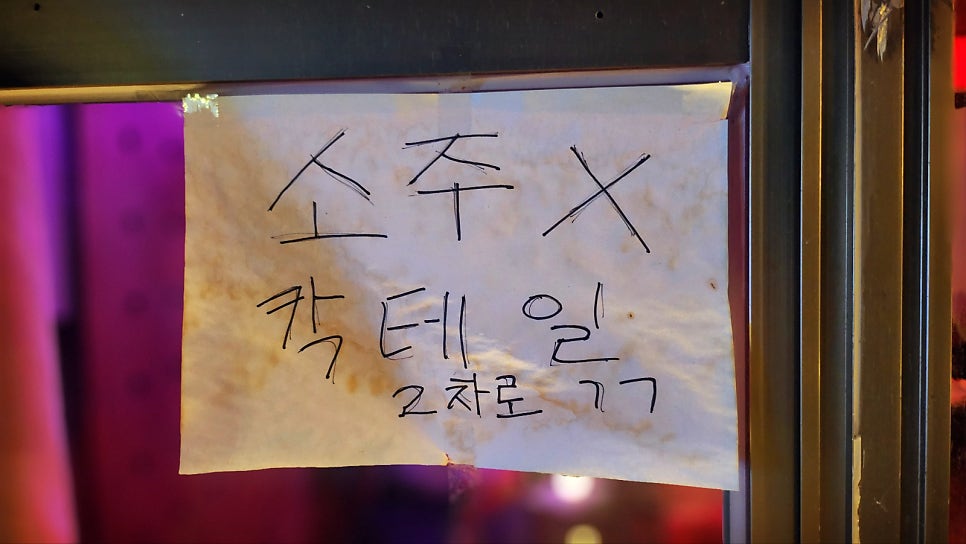 소주 X
칵테일
2차로 ㄱㄱ